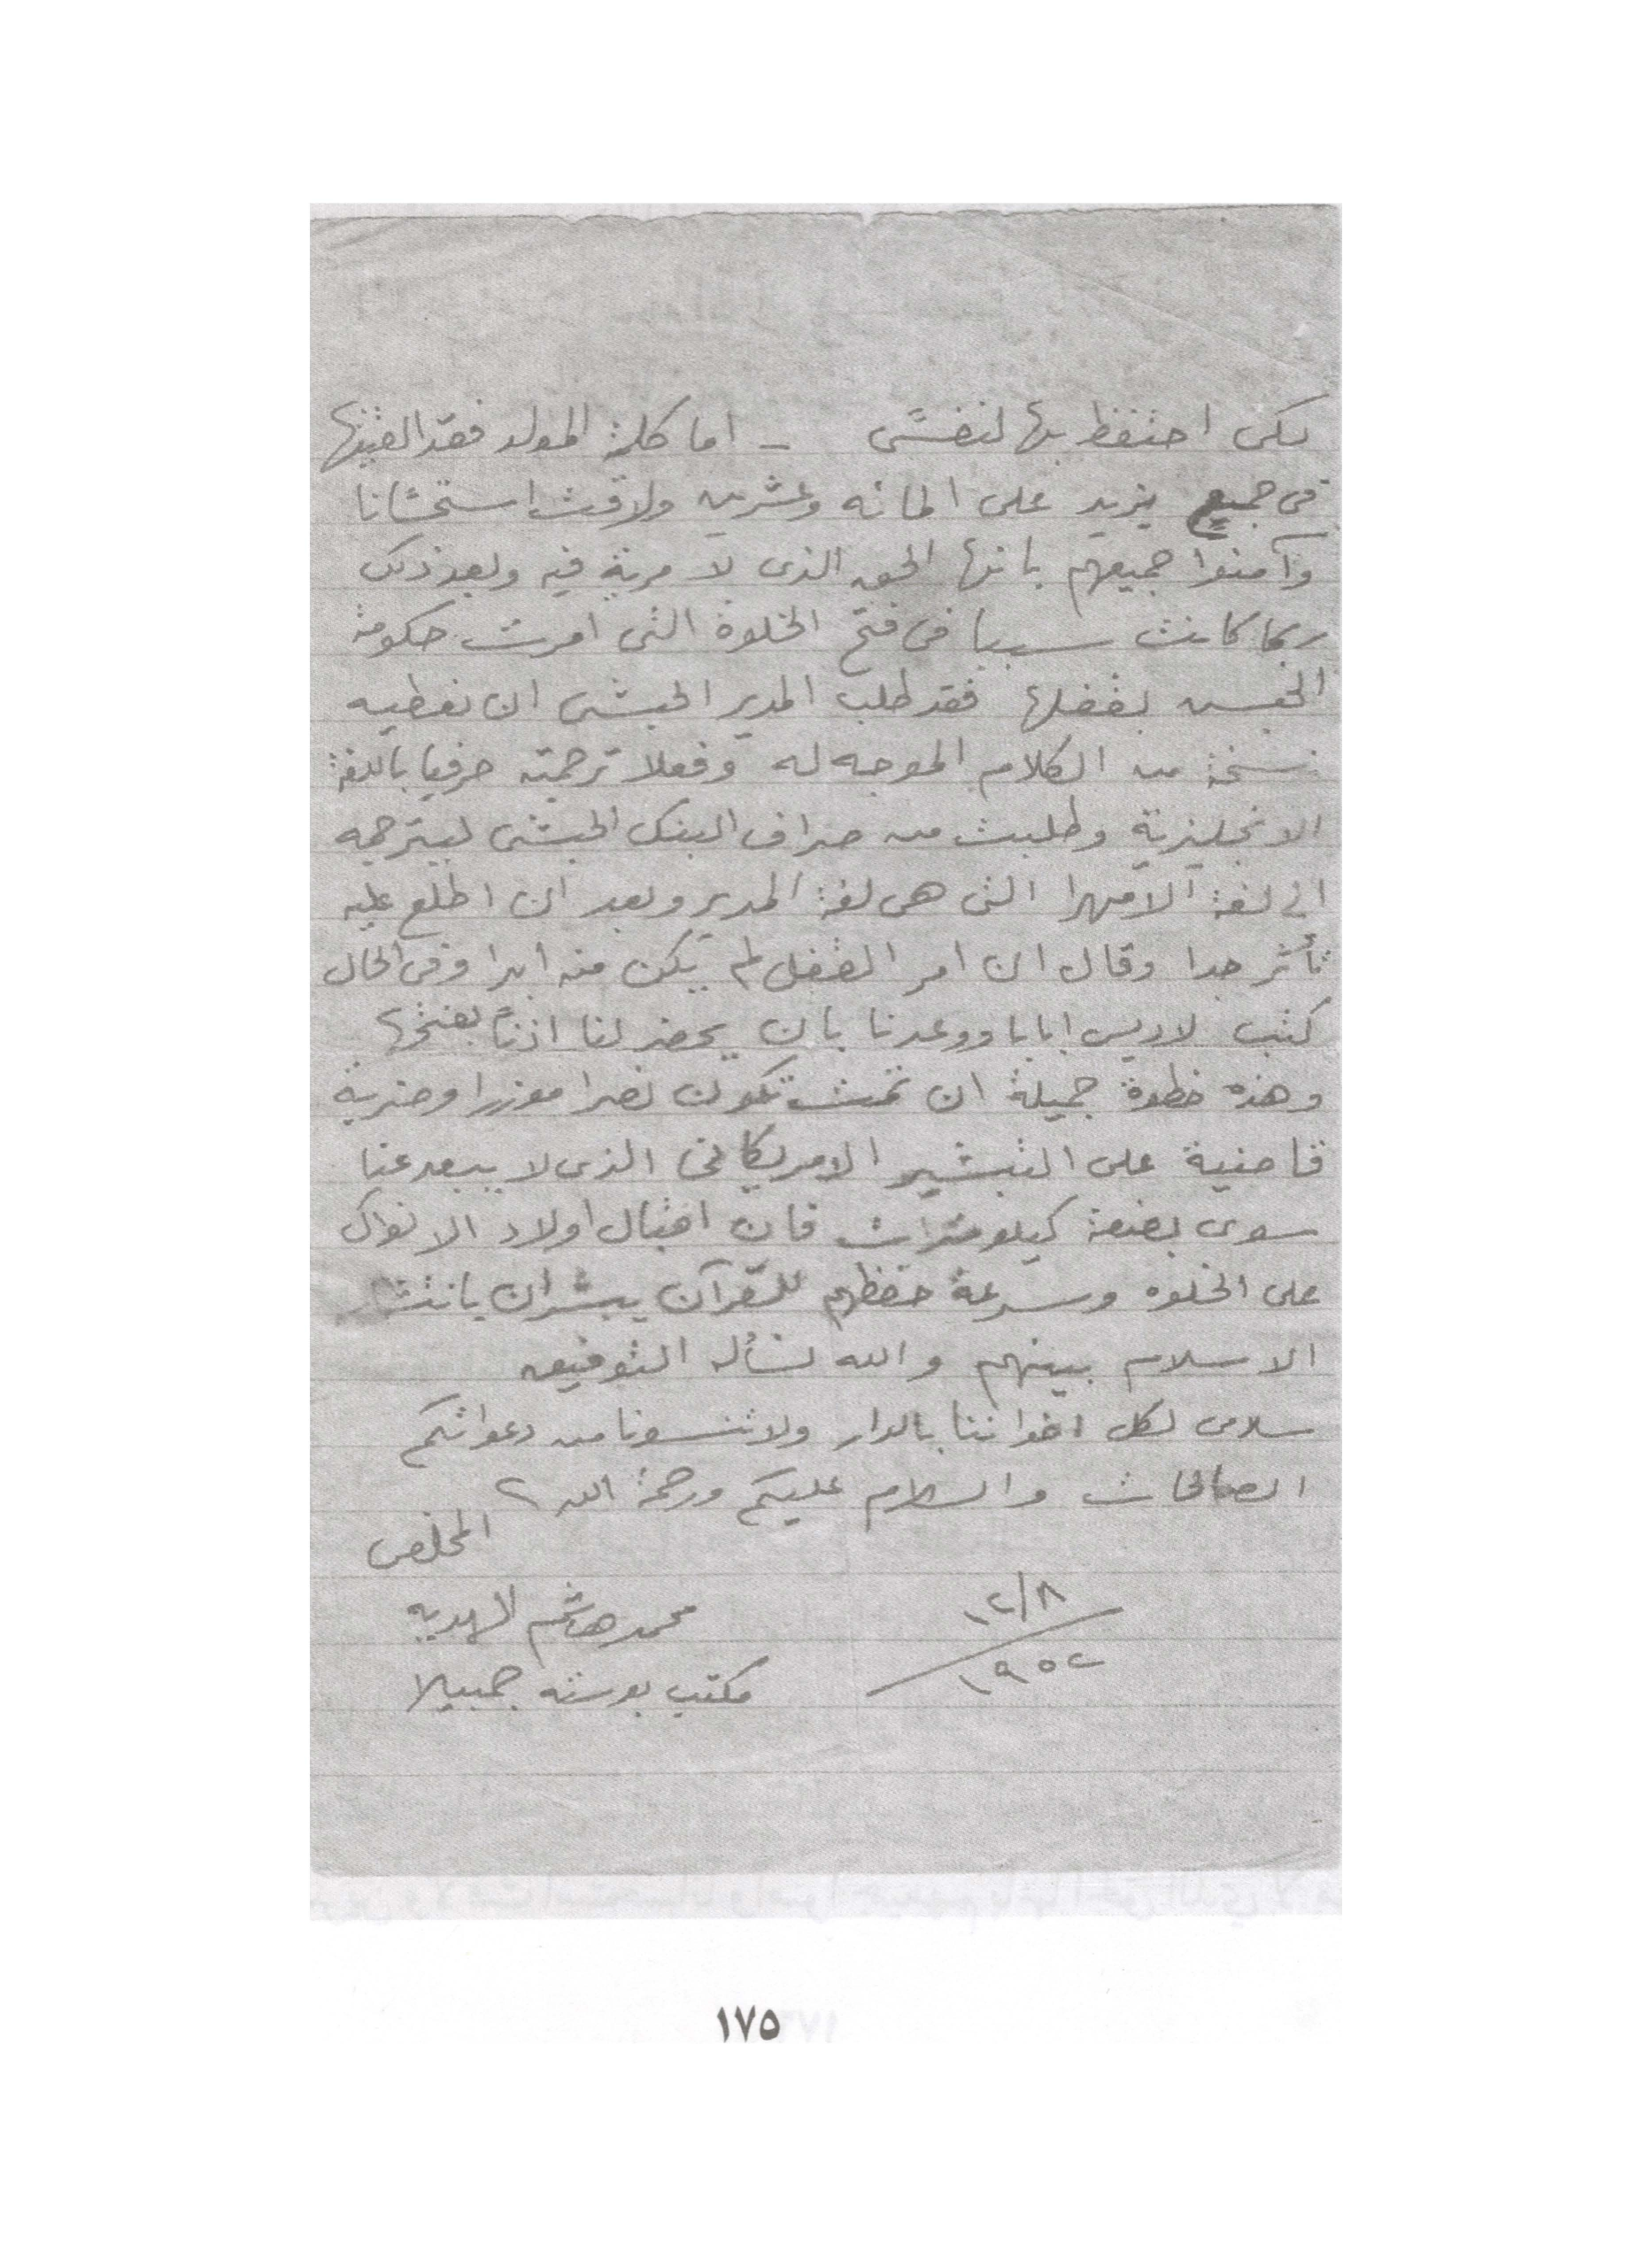 لكى احتفظ بها لنفسى - اما كلمة المولد فقد القيتها
فى جميع يزيد على المائه وعشرين ولاقت استحسانا
وآمنوا جميعهم بانها الحق الذى لا مرية فيه وبعد ذلك
ربما كانت سببا فى فتح الخلوة التى امرت حكومة
الحبش بقفلها فقد طلب المدير الحبشى ان نعطيه
نسخة من الكلام الموجه له وفعلا ترجمته حرفيا باللغة
الانجليزية وطلبت من صراف البنك الحبشى ليترجمه
الى لغة الامهرا التى هى لغة المدير وبعد ان اطلع عليه
تأثر جدا وقال ان امر القفل لم يكن منه ابدا وفى الحال
كتب لاديس ابابا ووعدنا بان يحضر لنا اذناً بفتحها
وهذه خطوة جميلة ان تمت تكون نصرا مؤزرا وضربة
قاضية على التبشير الامريكانى الذى لا يبعد عنا
سوى بضعة كيلومترات فان اقبال اولاد الانواك
على الخلوه وسرعة حفظهم للقرآن يبشران بانتشار
الاسلام بينهم والله نسأله التوفيق
سلامى لكل اخواننا بالدار ولا تنسونا من دعواتكم
الصالحات والسلام عليكم ورحمة الله
المخلص
محمد هاشم الهدية
١٢/٨
١٩٥٢
مكتب بوسته جمبيلا
١٧٥